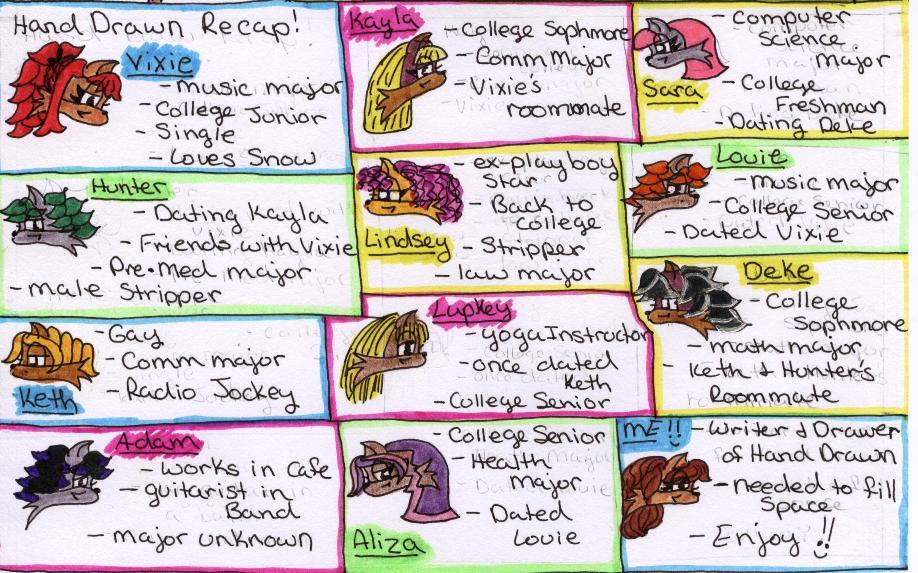 Hand Drawn Recap!
Vixie
- music major
- College Junior
- Single
- Loves Snow
Kayla
- College Sophmore
- Comm Major
- Vixie's
roommate
Sara
- Computer
Science
Major
- College
Freshman
- Dating Deke
Hunter
- Dating Kayla
- Friends with Vixie
- Pre-Med major
- male Stripper
Lindsey
- ex-playboy
Star
- Back to
college
- Stripper
- law major
Louie
- music major
- College Senior
- Dated Vixie
Deke
- College
Sophmore
- math major
- Keth & Hunter's
Roommate
Keth
- Gay
- Comm major
- Radio Jockey
Lupkey
- yoga Instructor
- once dated
Keth
- College Senior
Adam
- works in Cafe
- guitarist in
Band
- major unknown
Aliza
- College Senior
- Health
Major
- Dated
Louie
ME!!
- Writer & Drawer
of Hand Drawn
- needed to fill
Space
- Enjoy!!